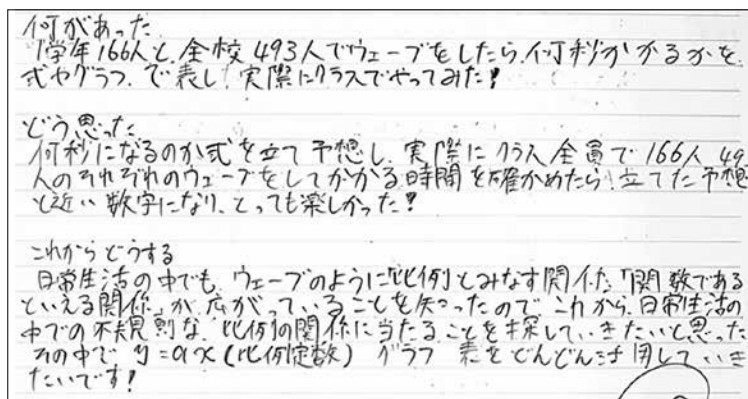 何があった
1学年166人と、全校493人でウェーブをしたら、何秒かかるかを
式やグラフ、で表し、実際にクラスでやってみた!
どう思った
何秒になるのか式を立て予想し、実際にクラス全員で166人 49
人のそれぞれのウェーブをしてかかる時間を確かめたら、立てた予想
と近い数字になり、とっても楽しかった!
これからどうする
日常生活の中でも、ウェーブのように「比例とみなす関係」「関数である
といえる関係」が広がっていることを知ったので、これから、日常生活の
中での不規則な、比例の関係に当たることを探していきたいと思った
その中で y=ax (比例定数) グラフ 表をどんどん活用していき
たいです!